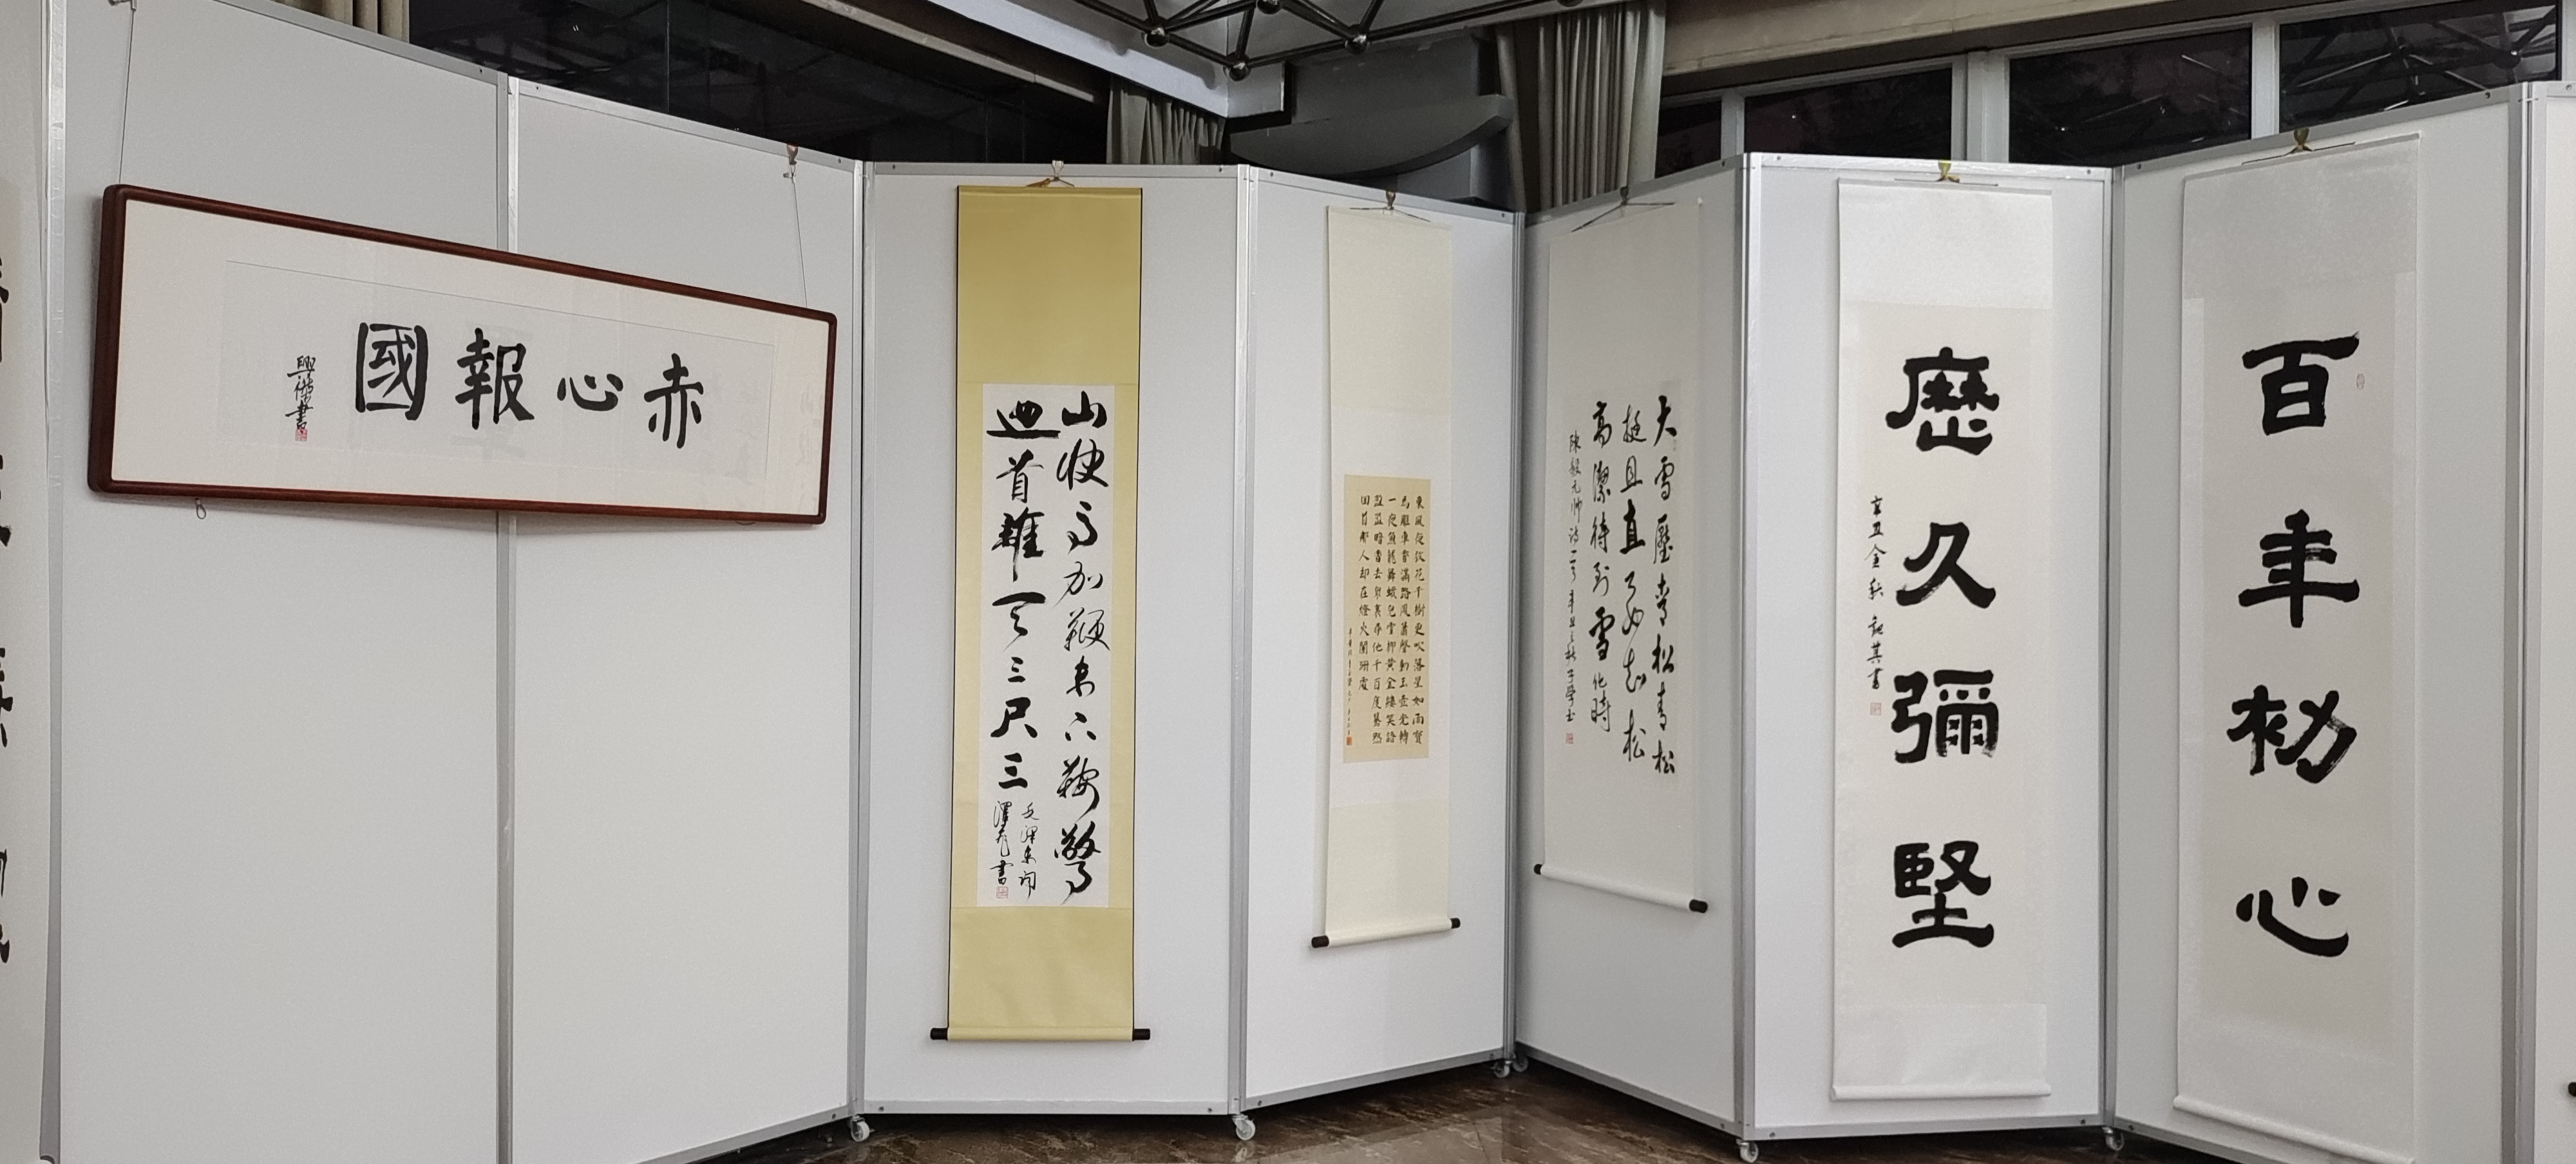 百年初心
歷久彌堅
辛丑金秋 其書
大雪壓青松青松
挺且直要知松
高潔待到雪化時
陳毅元帥詩一首 辛丑之秋
東風夜放花千樹更吹落星如雨寶
馬雕車香滿路鳳簫聲動玉壺光轉
一夜魚龍舞蛾兒雪柳黃金縷笑語
盈盈暗香去眾裏尋他千百度驀然
回首那人却在燈火闌珊處
山快馬加鞭未下鞍驚
迴首離天三尺三
毛澤東詞
赤心報國
興傑書